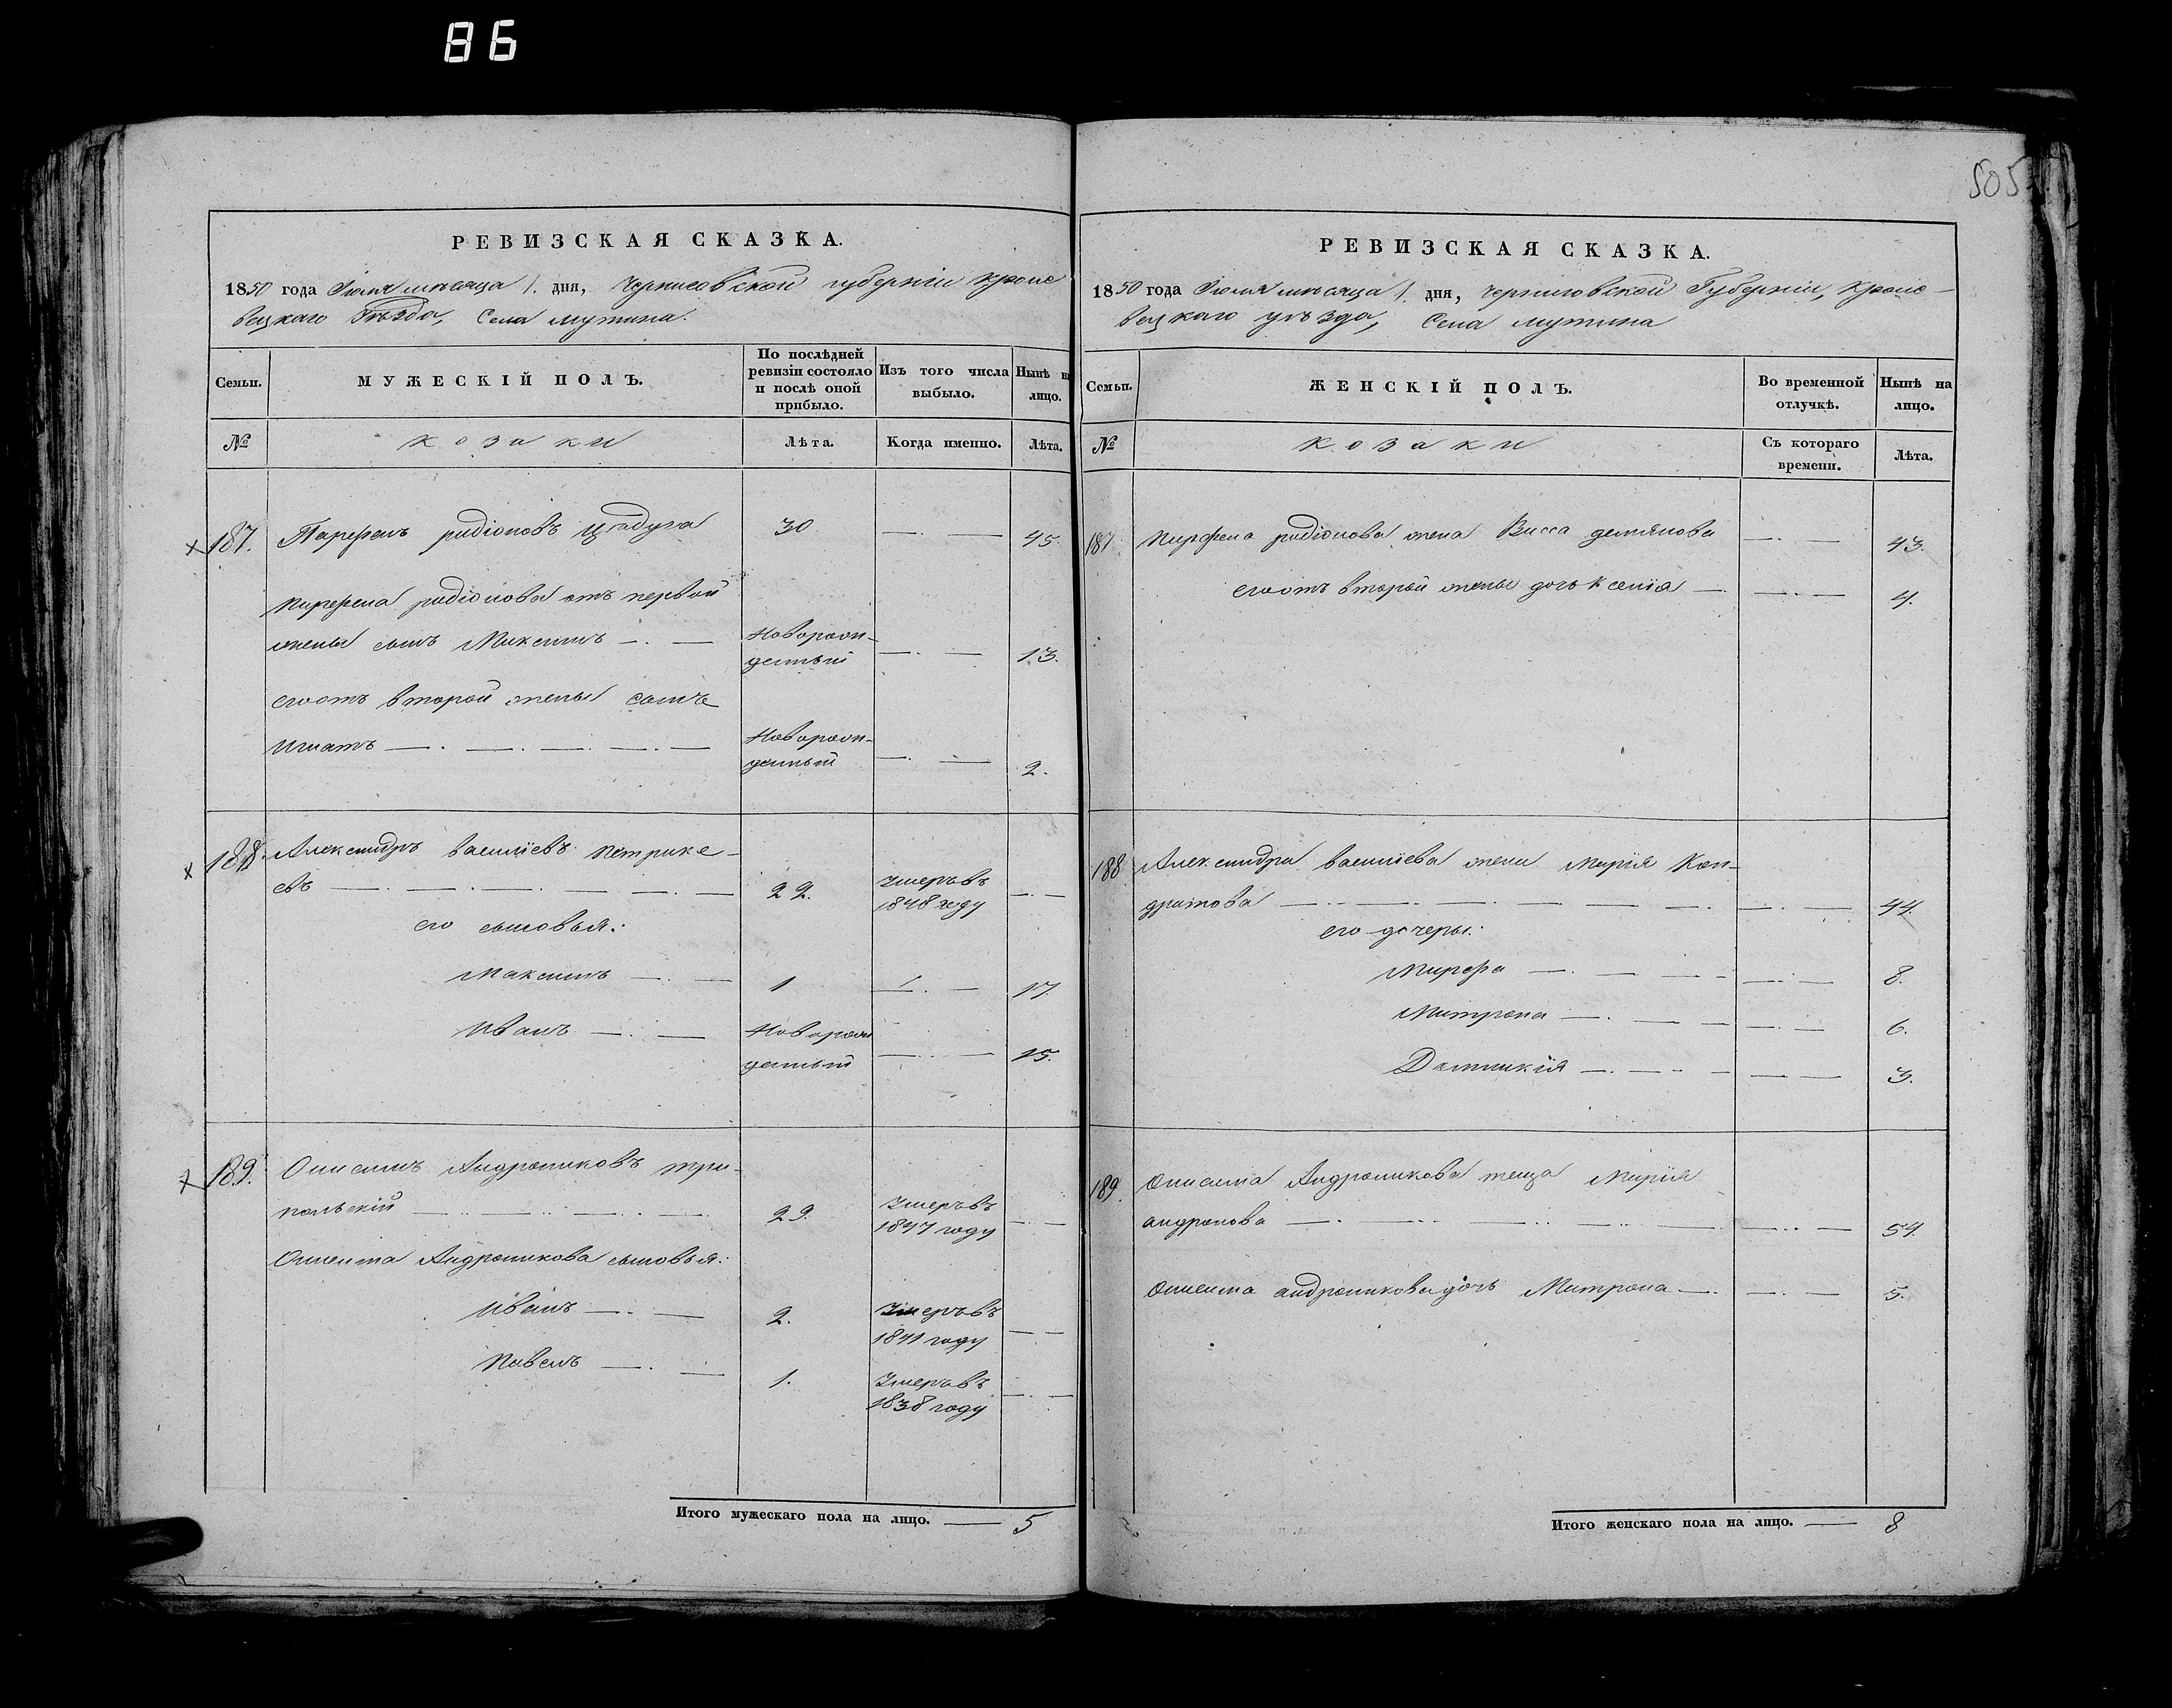 86
505
РЕВИЗСКАЯ СКАЗКА.
1850 года Іюля мѣсяца 1. дня, Черниговской губерніи Кроле
вецкаго Уѣзда, Села Мутина.
Семьи.
МУЖЕСКІЙ ПОЛЪ.
По послѣдней ревизіи состояло и послѣ оной прибыло.
Изъ того числа выбыло.
Нынѣ на лицо.
№
козаки
Лѣта.
Когда именно.
Лѣта.
187. Парфенъ радіоновъ 30 45.
Парфена радіонова отъ первой
жены сынъ Максимъ Новорож-
денный 13.
его отъ второй жены сынъ
Игнатъ Новорож-
денный 2.
188. Александръ василіевъ Петрике-
евъ 22. Умеръ въ
1848 году
его сыновья:
Максимъ 1 17.
Иванъ Новорож
денный 15.
189. Онисимъ Андрониковъ три-
польскій 29. Умеръ въ
1847 году
Онисима Андроникова сыновья:
Иванъ 2. Умеръ въ
1841 году
Павелъ 1. Умеръ въ
1838 году
Итого мужескаго пола на лицо. 5
РЕВИЗСКАЯ СКАЗКА.
1850 года Іюля мѣсяца 1. дня, Черниговской Губерніи, Кроле-
вецкаго уѣзда, Села Мутина
Семьи.
ЖЕНСКІЙ ПОЛЪ.
Во временной отлучкѣ.
Нынѣ на лицо.
№
козаки
Съ котораго времени.
Лѣта.
187 Парфена радіонова жена Васса демянова 43.
его отъ второй жены дочь Ксенія 4.
188 Александра василіева жена Марія Кон-
дратова 44.
его дочеры:
Марфа 8.
Матрона 6.
Домникія 3.
189. Онисима Андроникова теща Марія
андронова 54.
Онисима андроникова дочь Матрона 5.
Итого женскаго пола на лицо. 8